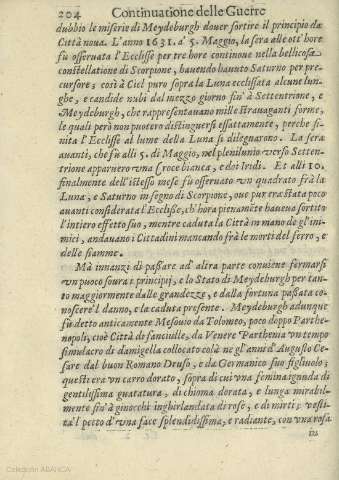 204 Continuatione delle Guerre
dubbio le miserie di Meydeburgh douer sortire il principio da
Città noua. L'anno 1631. a' 5. Maggio, la sera alle ott'hore
fù osseruata l'Ecclisse per tre hore continoue nella bellicosa
constellatione di Scorpione, hauendo hauuto Saturno per pre
cursore; così à Ciel puro sopra la Luna ecclissata alcune lun-
ghe, e candide nubi dal mezzo giorno sin' à Settentrione, e
Meydeburgh, che rappresentauano mille strauaganti forme,
le quali però non puotero distinguersi essattamente, perche fi-
nita l'Ecclisse al lume della Luna si dileguarono. La sera
auanti, che fù alli 5. di Maggio, nel plenilunio verso Setten-
trione apparuero vna Croce bianca, e doi Iridi. Et alli 10.
finalmente dell'istesso mese fù osseruato vn quadrato frà la
Luna, e Saturno in segno di Scorpione, oue pur era stata poco
auanti considerata l'Ecclisse, ch'hora pienamẽte haueua sortito
l'intiero effetto suo, mentre caduta la Città in mano de gl'ini-
mici, andauano i Cittadini mancando frà le morti del ferro, e
delle fiamme.
Mà innanzi di passare ad' altra parte conuiene fermarsi
vn puoco soura i principij, e lo Stato di Meydeburgh per tan-
to maggiormente dalle grandezze, e dalla fortuna passata co-
noscere'l danno, e la caduta presente. Meydeburgh adunque
fù detto anticamente Mesouio da Tolomeo, poco doppo Parthe-
nopoli, cioè Città di fanciulle, da Venere Parthenia vn tempo
simulacro di damigella collocato colà ne gl'anni d'Augusto Ce-
sare dal buon Romano Druso, e da Germanico suo figliuolo;
questi era vn carro dorato, sopra di cui vna femina ignuda di
gentilissima guatatura, di chioma dorata, e lunga mirabil-
mente sin' à ginocchi inghirlandata di rose, e di mirti; vesti-
ta'l petto d'vna face splendidissima, e radiante, con vna rosa
in
Colección ABANCA